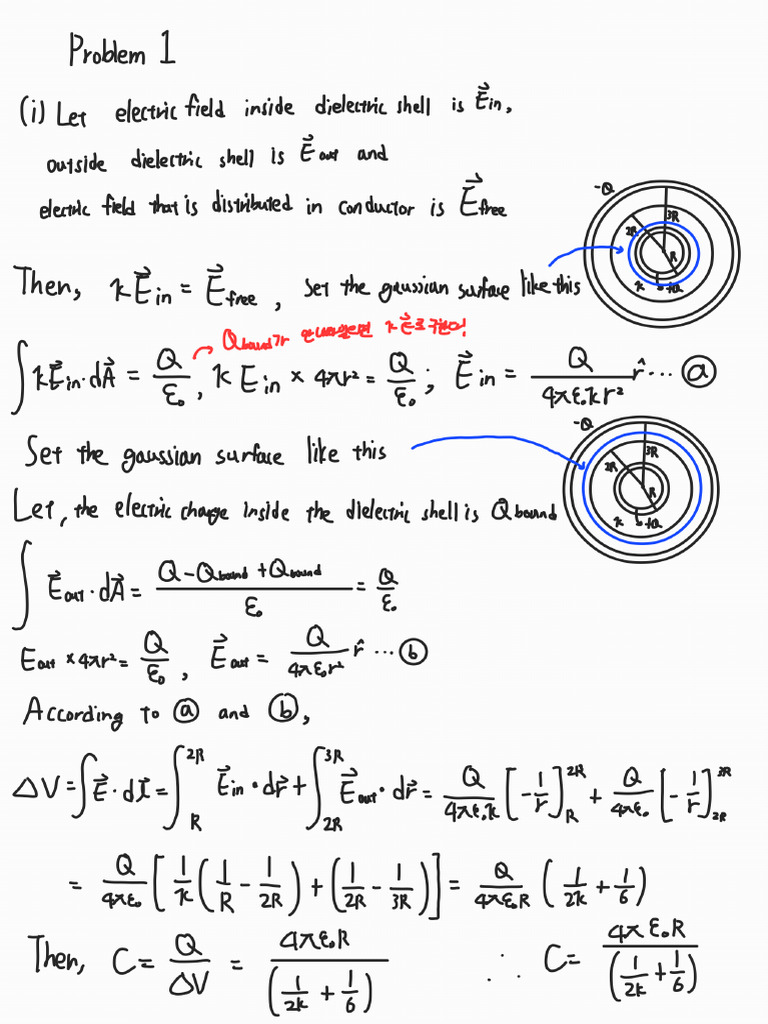 Problem 1
(i) Let electric field inside dielectric shell is E⃗in,
outside dielectric shell is E⃗out and
electric field that is distributed in conductor is E⃗free
-Q
3R
2R
R
k
+Q
Then, kE⃗in = E⃗free, Set the gaussian surface like this
Qbound가
∫kE⃗in·dA⃗ = Q/ε₀, k Ein × 4πr² = Q/ε₀; E⃗in = Q/(4πε₀kr²) r̂ ··· ⓐ
Set the gaussian surface like this
-Q
3R
2R
R
k
+Q
Let, the electric charge inside the dielectric shell is Qbound
∫E⃗out·dA⃗ = (Q-Qbound+Qbound)/ε₀ = Q/ε₀
Eout × 4πr² = Q/ε₀, E⃗out = Q/(4πε₀r²) r̂ ··· ⓑ
According to ⓐ and ⓑ,
ΔV = ∫E⃗·dl⃗ = ∫_R^2R E⃗in·dr⃗ + ∫_2R^3R E⃗out·dr⃗ = Q/(4πε₀k) [-1/r]_R^2R + Q/(4πε₀) [-1/r]_2R^3R
= Q/(4πε₀) [1/k (1/R - 1/2R) + (1/2R - 1/3R)] = Q/(4πε₀R) (1/2k + 1/6)
Then, C = Q/ΔV = 4πε₀R/(1/2k + 1/6) ∴ C = 4πε₀R/(1/2k + 1/6)